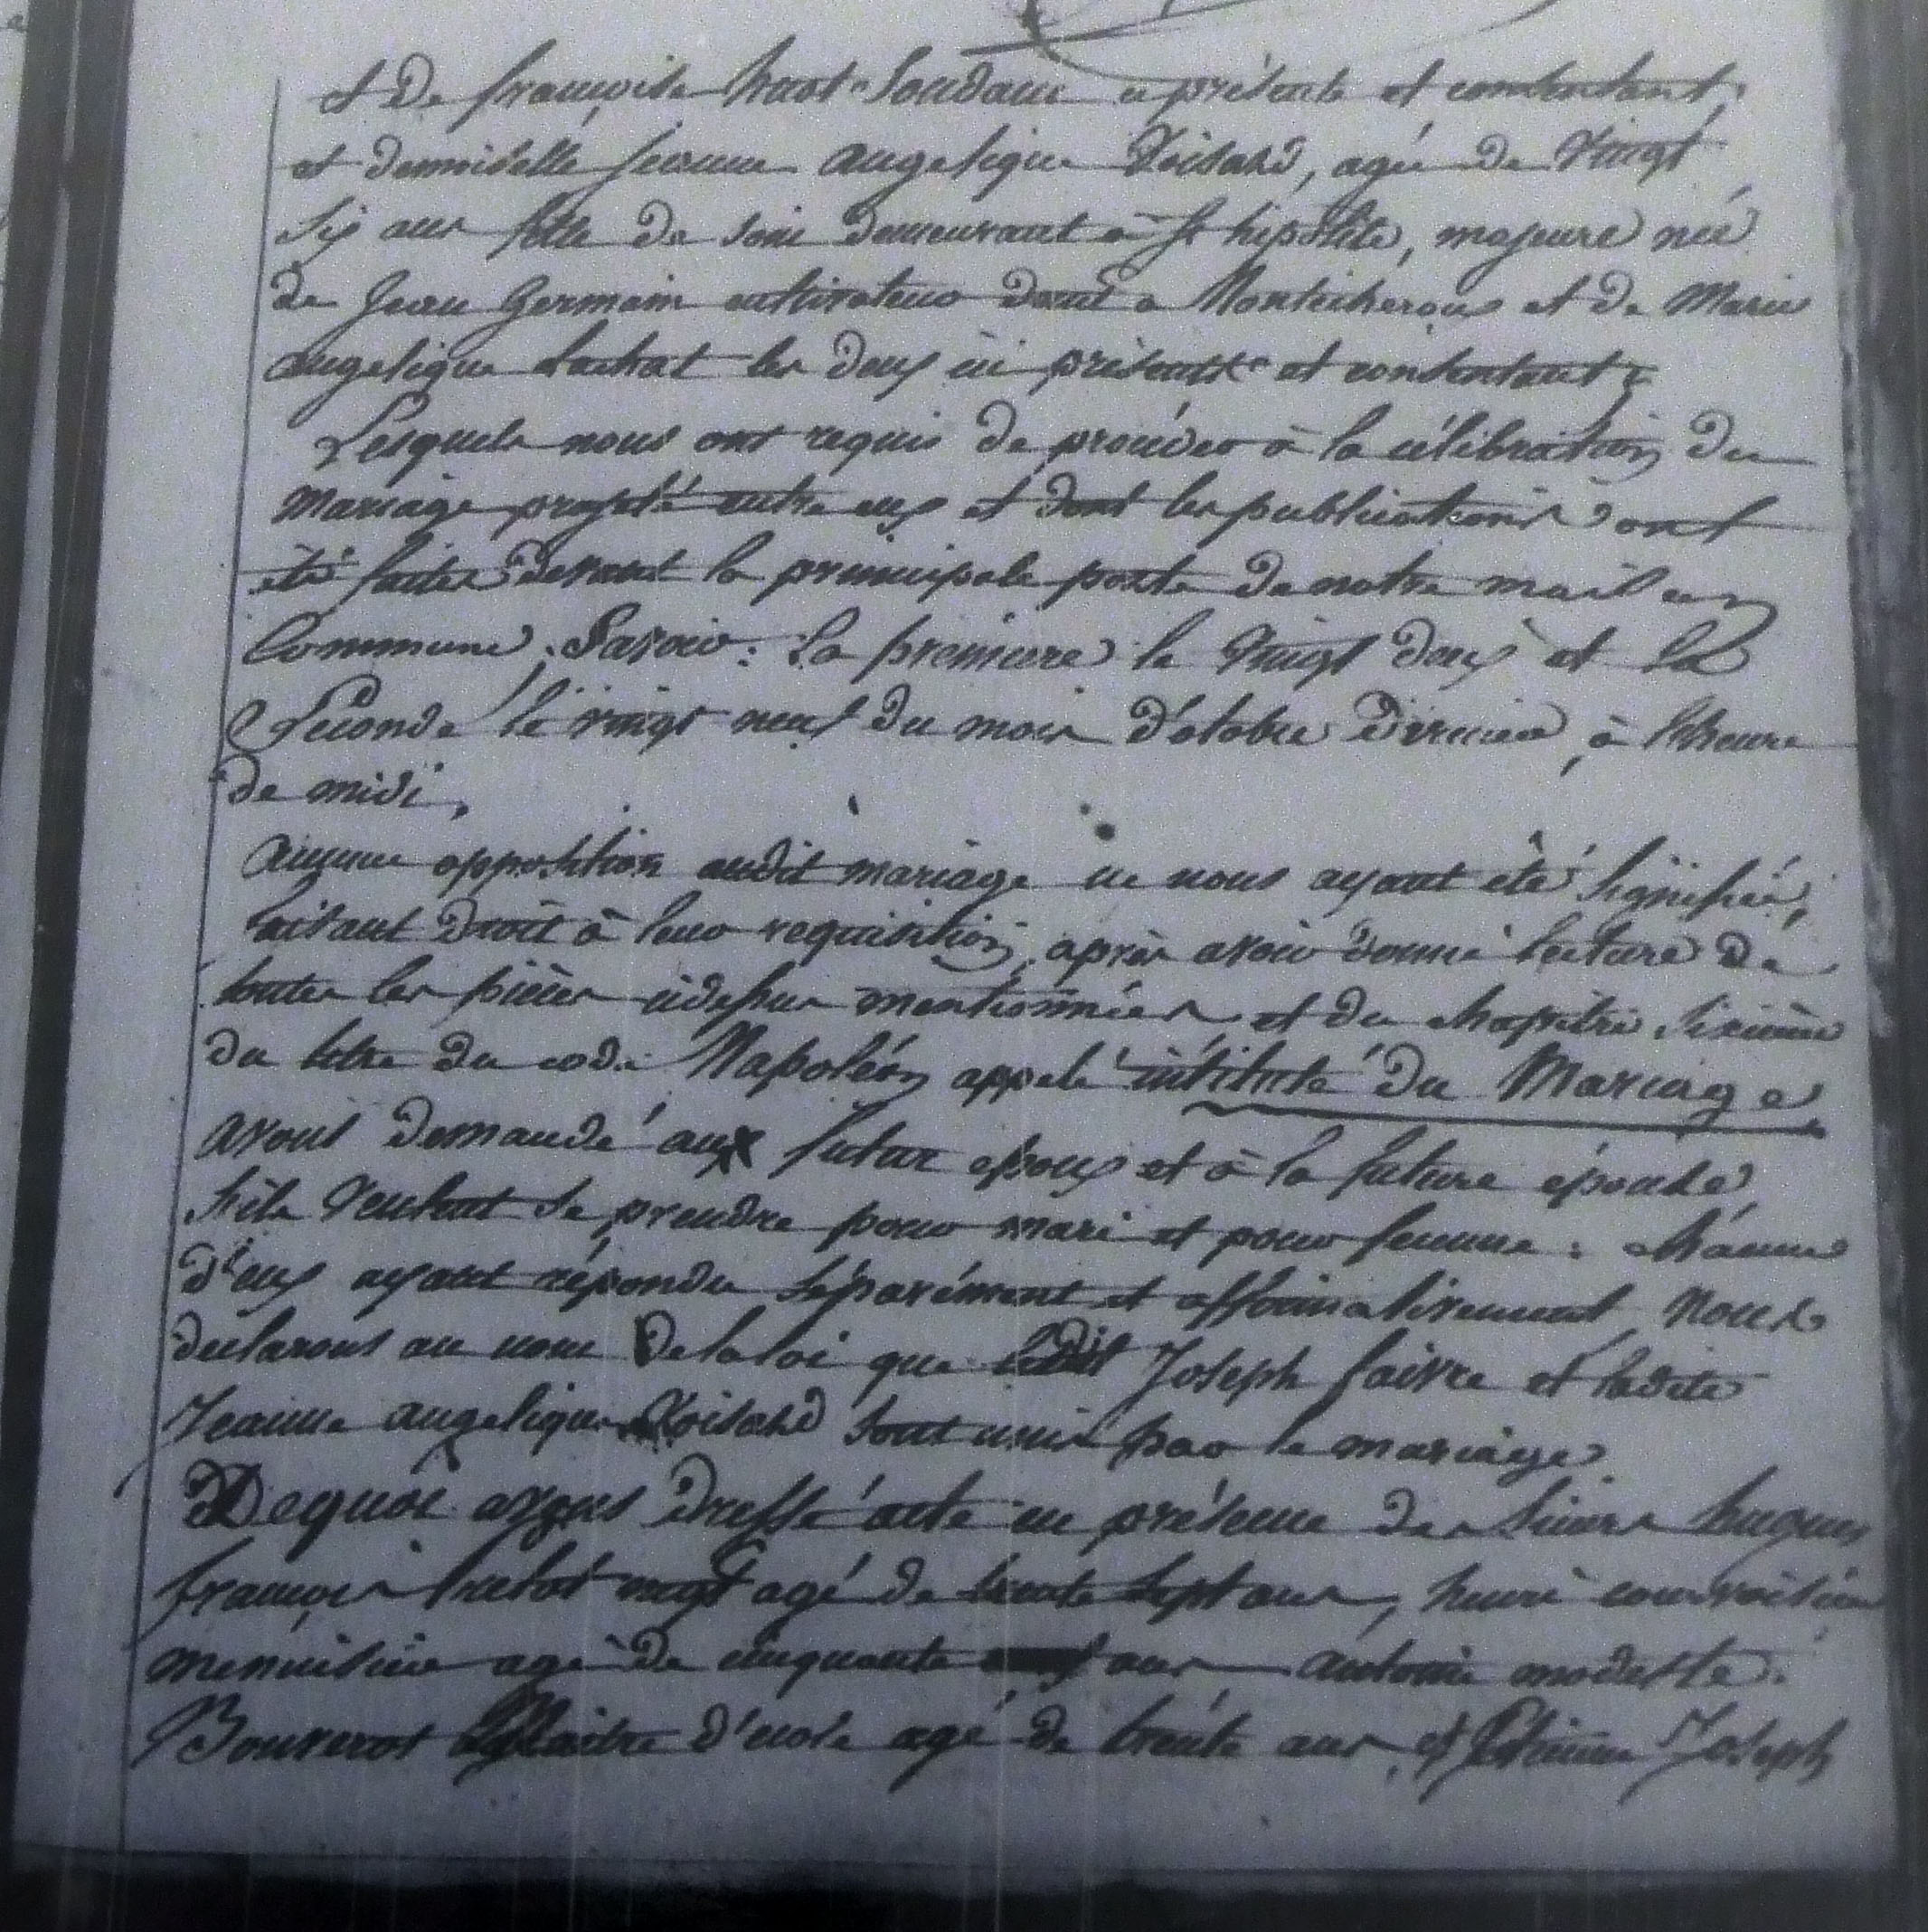 et De françoise huot-Soudain a présente et consentant,
et demoiselle jeanne angelique Voisard, agée de Vingt
Six ans fille de Soie demeurant à St hipolite, majeure née
de Jean Germain cultivateur demt a Montécheroux et de Marie
angelique Lachat les deux ici présents et consentant;
Lesquels nous ont requis de procéder à la célébration du
mariage projeté entre eux et dont les publications ont
été faites devant la principale porte de notre maison
Commune; Savoir: La premiere le Vingt deux et La
Seconde le vingt neuf du mois d'octobre Dernier, à l'heure
de midi,
aucune opposition audit mariage ne nous ayant été signifiée,
faisant Droit à leur requisition, après avoir donné lecture de
toutes les pièces cidessus mentionnées et du chapitre Sixième
du titre du code Napoléon appelé intitulé du Mariage
avons demandé aux futur epoux et à la future épouse
S'ils veulent se prendre pour mari et pour femme: chacun
d'eux ayant répondu séparément et affirmativement Nous
declarons au nom De la loi que ledit Joseph faivre et ladite
Jeanne angelique Voisard sont unis par le mariage
De quoi avons dressé acte en présence des Sieurs hugues
françois agé de trente Sept ans, henri courvoisier
menuisier agé de cinquante ans antoine modeste
Bouverot Maitre d'ecole agé de trente ans, et Etienne Joseph